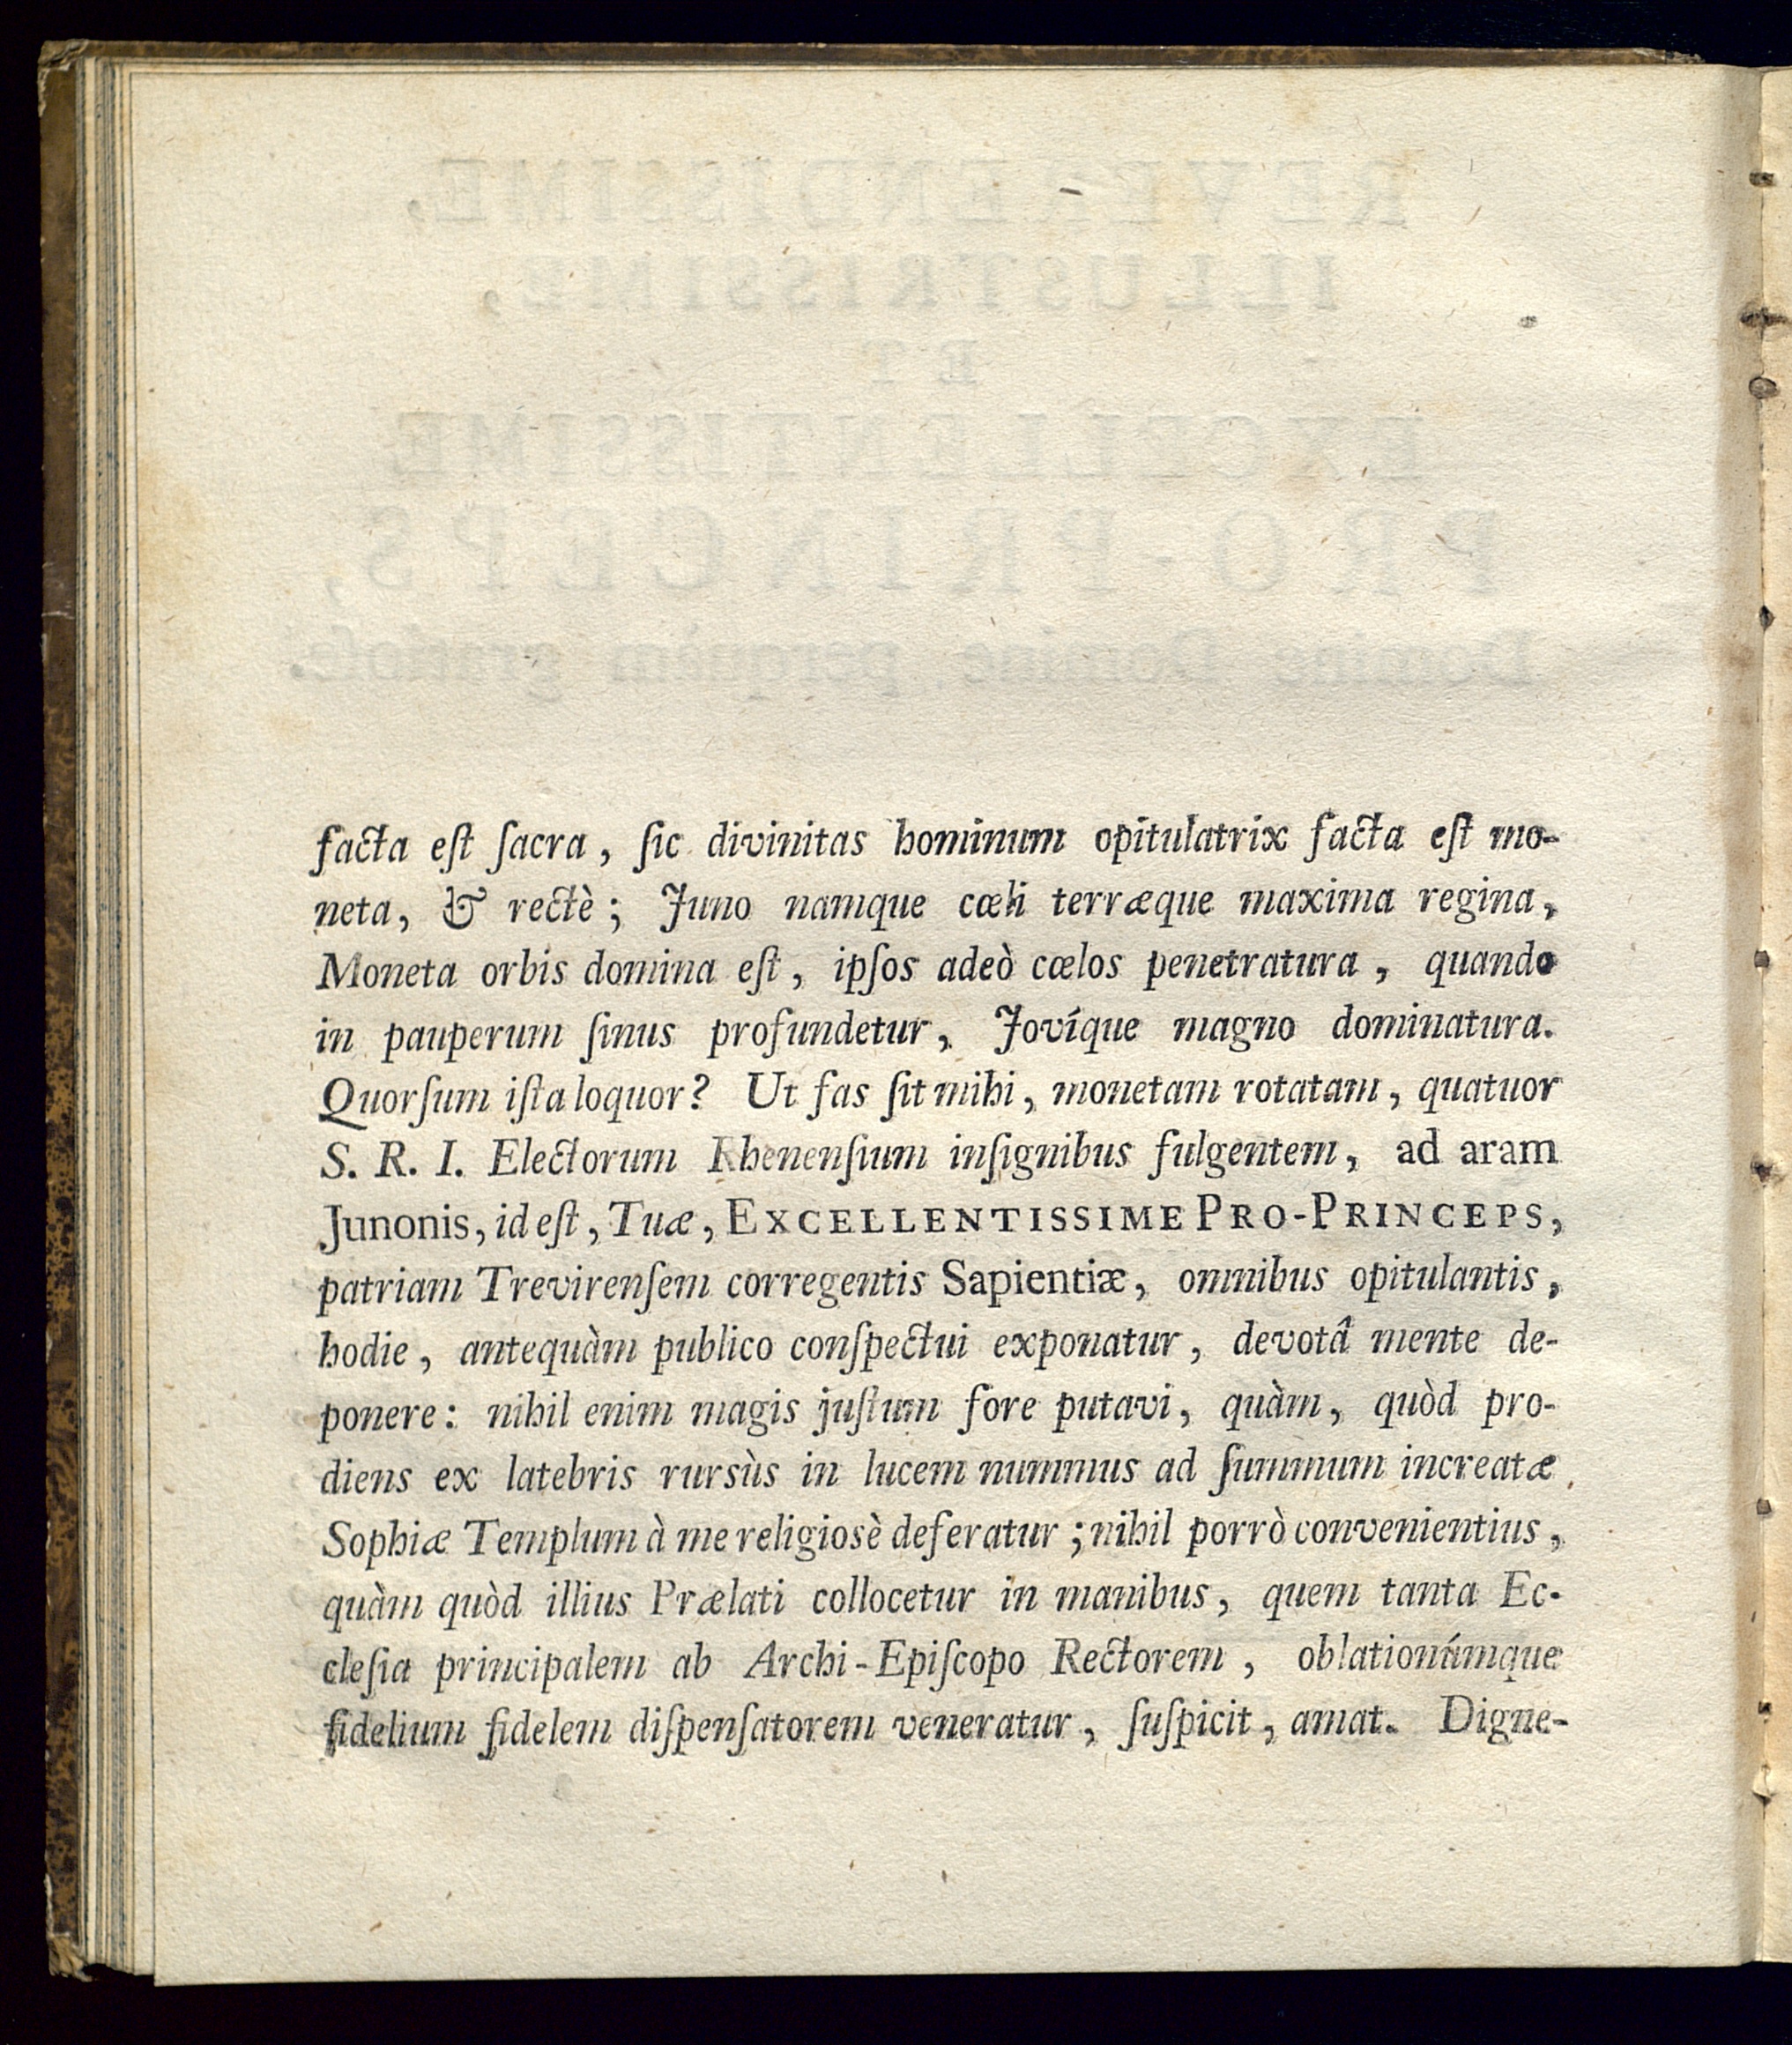 facta eſt ſacra, ſic divinitas hominum opitulatrix facta eſt mo-
neta, & rectè; Juno namque cœli terræque maxima regina,
Moneta orbis domina eſt, ipſos adeò cœlos penetratura, quando
in pauperum ſinus profundetur, Jovíque magno dominatura.
Quorſum iſta loquor? Ut fas ſit mihi, monetam rotatam, quatuor
S. R. I. Electorum Rhenenſium inſignibus fulgentem, ad aram
Junonis, id eſt, Tuæ, EXCELLENTISSIME PRO-PRINCEPS,
patriam Trevirenſem corregentis Sapientiæ, omnibus opitulantis,
hodie, antequàm publico conſpectui exponatur, devotâ mente de-
ponere: nihil enim magis juſtum fore putavi, quàm, quòd pro-
diens ex latebris rursùs in lucem nummus ad ſummum increatæ
Sophiæ Templum à me religiosè deferatur; nihil porrò convenientius,
quàm quòd illius Prælati collocetur in manibus, quem tanta Ec-
cleſia principalem ab Archi-Epiſcopo Rectorem, oblationúmque
fidelium fidelem diſpenſatorem veneratur, ſuſpicit, amat. Digne-